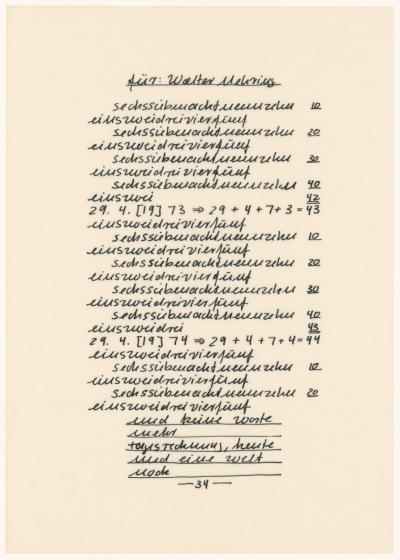 für: Walter Mehring
sechssiebenachtneunzehn 10
einszweidreivierfünf
sechssiebenachtneunzehn 20
einszweidreivierfünf
sechssiebenachtneunzehn 30
einszweidreivierfünf
sechssiebenachtneunzehn 40
einszwei 42
29. 4. [19] 73 ⇒ 29 + 4 + 7 + 3 = 43
einszweidreivierfünf
sechssiebenachtneunzehn 10
einszweidreivierfünf
sechssiebenachtneunzehn 20
einszweidreivierfünf
sechssiebenachtneunzehn 30
einszweidreivierfünf
sechssiebenachtneunzehn 40
einszweidrei 43
29. 4. [19] 74 ⇒ 29 + 4 + 7 + 4 = 44
einszweidreivierfünf
sechssiebenachtneunzehn 10
einszweidreivierfünf
sechssiebenachtneunzehn 20
einszweidreivierfünf
und keine worte
mehr
tagsrechnung, heute
und eine welt
noch
—34—